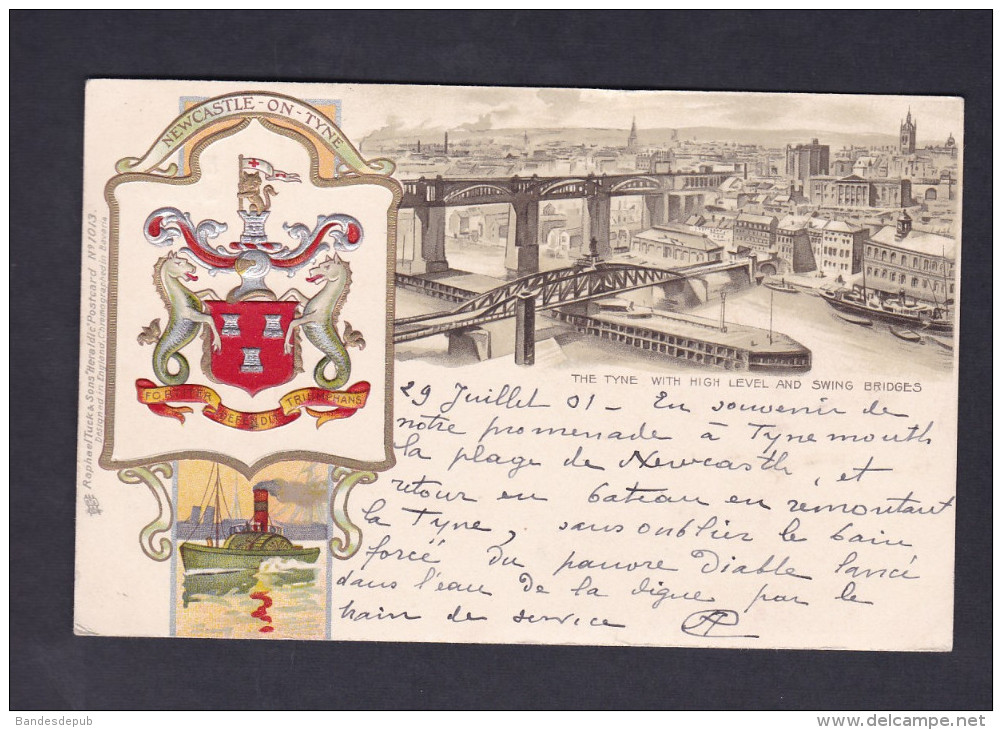 NEWCASTLE-ON-TYNE
Raphael Tuck & Sons "Heraldic" Postcard Nº 1013.
Designed in England, Chromographed in Bavaria
FORTITER
DEFENDIT
TRIUMPHANS
THE TYNE WITH HIGH LEVEL AND SWING BRIDGES
29 Juillet 01 - En souvenir de
notre promenade à Tynemouth
la plage de Newcastle, et
retour en bateau en remontant
la Tyne, sans oublier le bain
forcé du pauvre Diable lancé
dans l'eau De la digue par le
train de service
Bandesdepub
www.delcampe.net